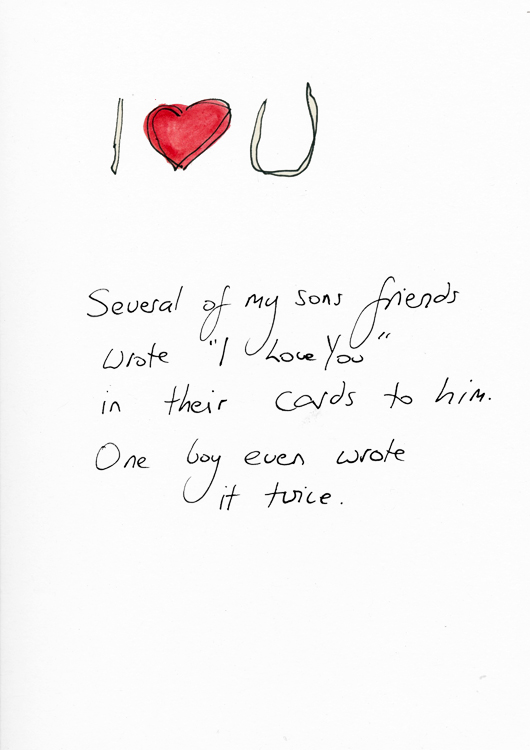 I ❤ U
Several of my sons friends
wrote "I Love You"
in their cards to him.
One boy even wrote
it twice.